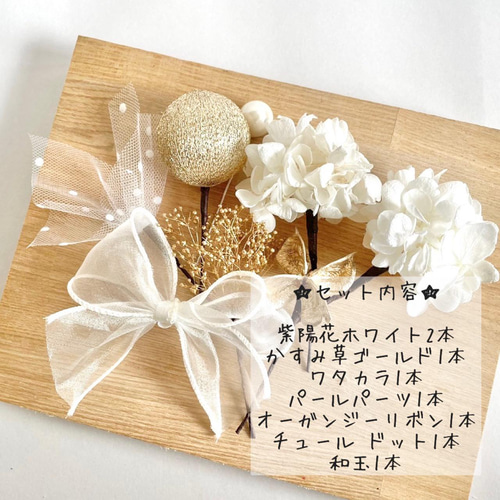 ✿セット内容✿
紫陽花ホワイト2本
かすみ草ゴールド1本
ワタカラ1本
パールパーツ1本
オーガンジーリボン1本
チュール ドット1本
和玉1本